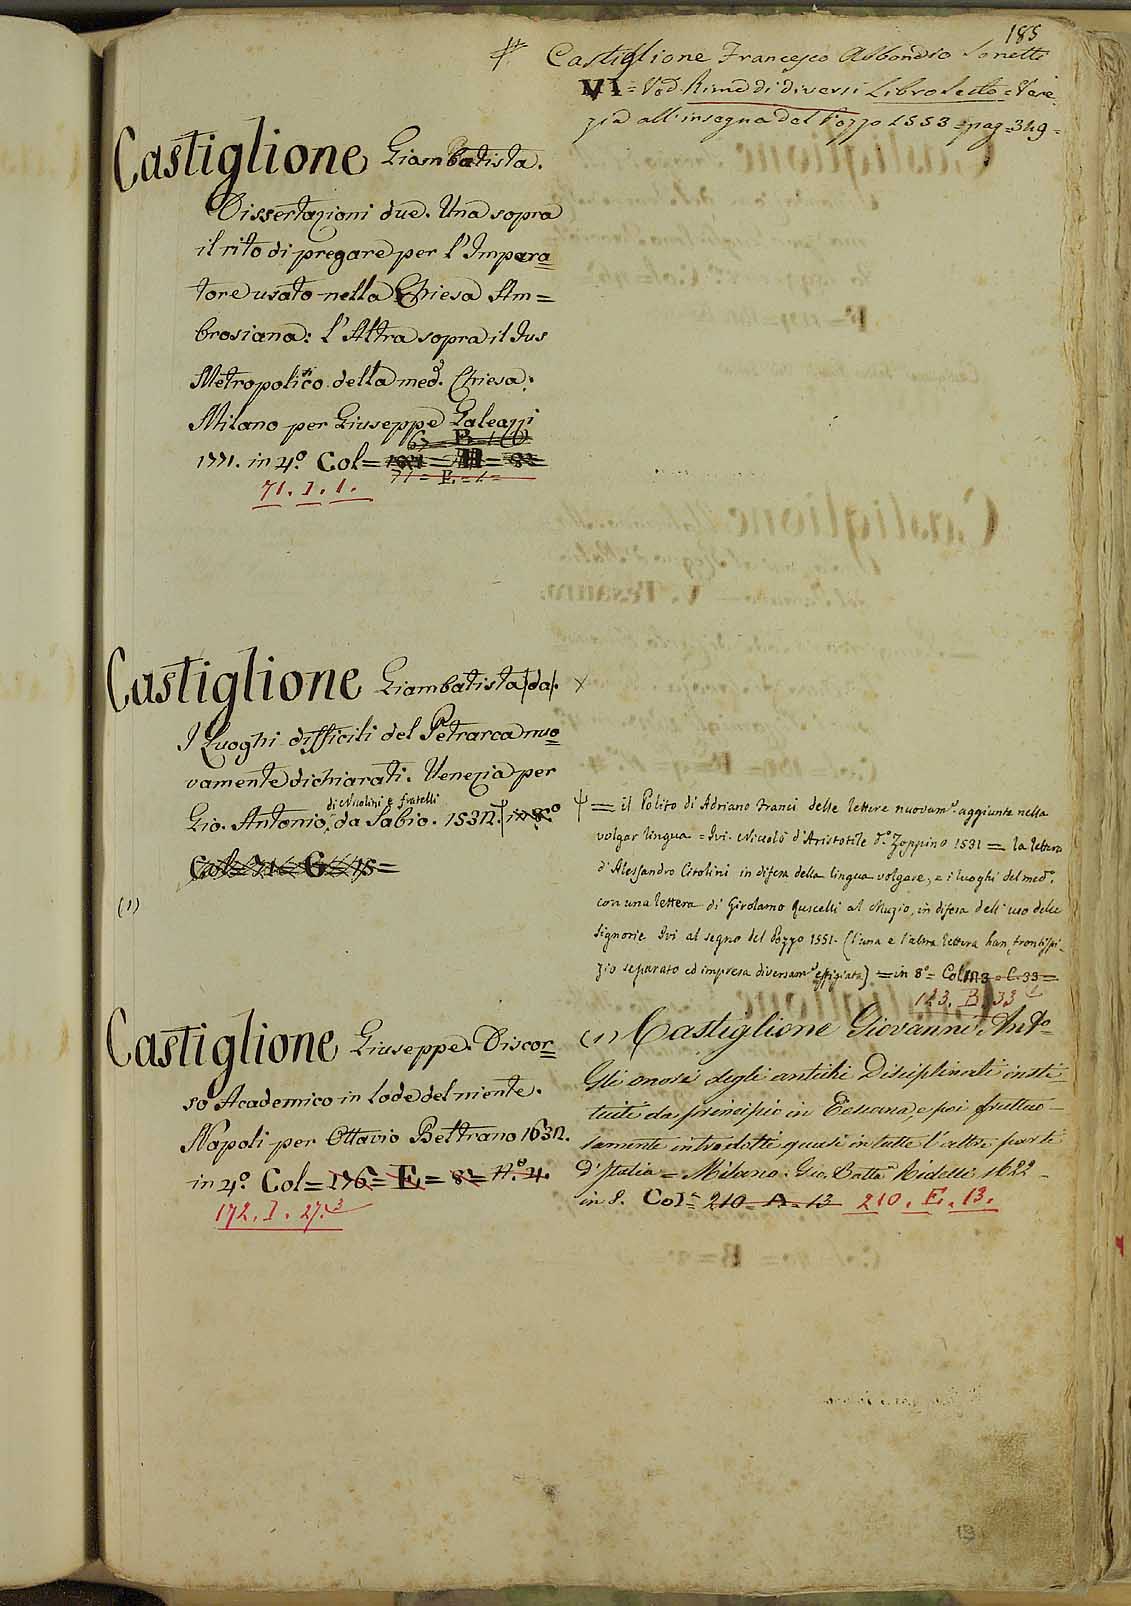 185
# Castiglione Francesco Abbondio Sonetti
VI = Ved. Rime di diversi Libro Sesto = Vene
zia all'insegna del Pozzo 1553 = pag = 349 =
Castiglione Giambatista.
Dissertazioni due. Una sopra
il rito di pregare per l'Impera=
tore usato nella Chiesa Am=
brosiana: l'Altra sopra il Jus
Metropolitico della med.a Chiesa.
Milano per Giuseppe Galeazzi
1771. in 4.o Col =
71 = E. = 1 =
71. I. 1.
Castiglione Giambatista (da). ×
I Luoghi difficili del Petrarca nuo=
vamente dichiarati. Venezia per
di Nicolini e fratelli
Gio. Antonio, da Sabio. 1532. ψ in 8.o
Col =
(1)
ψ = il Polito di Adriano Franci delle lettere nuovam.e aggiunte nella
volgar lingua = Ivi. Niccolò d'Aristotile d.o Zoppino 1531 = la lettera
d'Alessandro Citolini in difesa della lingua volgare, e i luoghi del med.o
con una lettera di Girolamo Ruscelli al Muzio, in difesa dell'uso delle
Signorie Ivi al segno del Pozzo 1551. (l'una e l'altra lettera han, frontispi-
zio separato ed impresa diversam.e effigiata) = in 8.o = Col 113 = C. 33 =
123. B. 33
Castiglione Giuseppe. Discor=
so Academico in lode del niente.
Napoli per Ottavio Beltrano 1632.
in 4.o Col = 176 = E = 8 = N.o 4.
172. I. 27.3
(1) Castiglione Giovanni Ant.o
Gli onori degli antichi Disciplinati insti-
tuiti da principio in Toscana, e poi fruttuo-
samente introdotti quasi in tutte l'altre parti
d'Italia = Milano. Gio. Batta Bidelli 1622 -
in 8. Col = 210 = A = 13 210. E. 13.
13